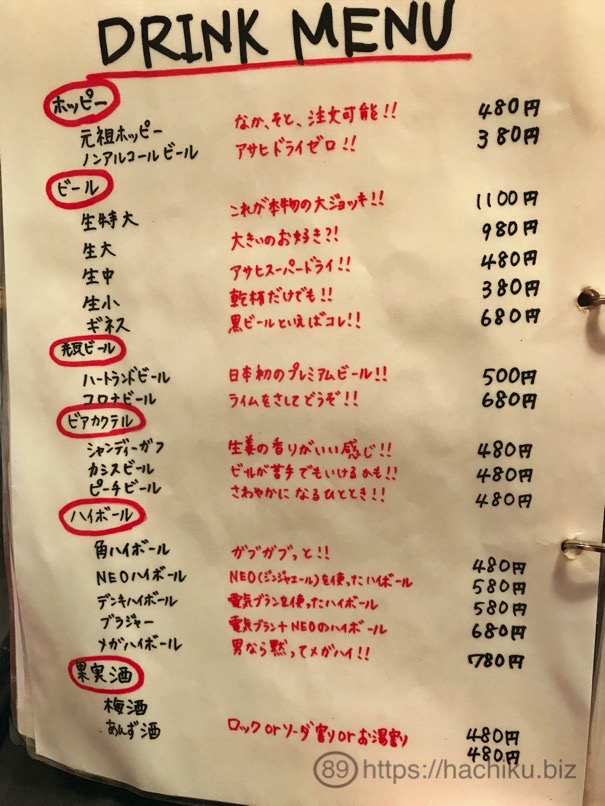 DRINK MENU
ホッピー
元祖ホッピー なか、そと、注文可能!! 480円
ノンアルコールビール アサヒドライゼロ!! 380円
ビール
生特大 これが本物の大ジョッキ!! 1100円
生大 大きいのお好き?! 980円
生中 アサヒスーパードライ!! 480円
生小 乾杯だけでも!! 380円
ギネス 黒ビールといえばコレ!! 680円
瓶ビール
ハートランドビール 日本初のプレミアムビール!! 500円
コロナビール ライムをさしてどうぞ!! 680円
ビアカクテル
シャンディーガフ 生姜の香りがいい感じ!! 480円
カシスビール ビールが苦手でもいけるかも!! 480円
ピーチビール さわやかになるひととき!! 480円
ハイボール
角ハイボール ガブガブっと!! 480円
NEOハイボール NEO(ジンジャエール)を使ったハイボール 580円
デンキハイボール 電気ブランを使ったハイボール 580円
ブラジャー 電気ブラン+NEOのハイボール 680円
メガハイボール 男なら黙ってメガハイ!! 780円
果実酒
梅酒 480円
あんず酒 ロックorソーダ割りorお湯割り 480円
89 https://hachiku.biz